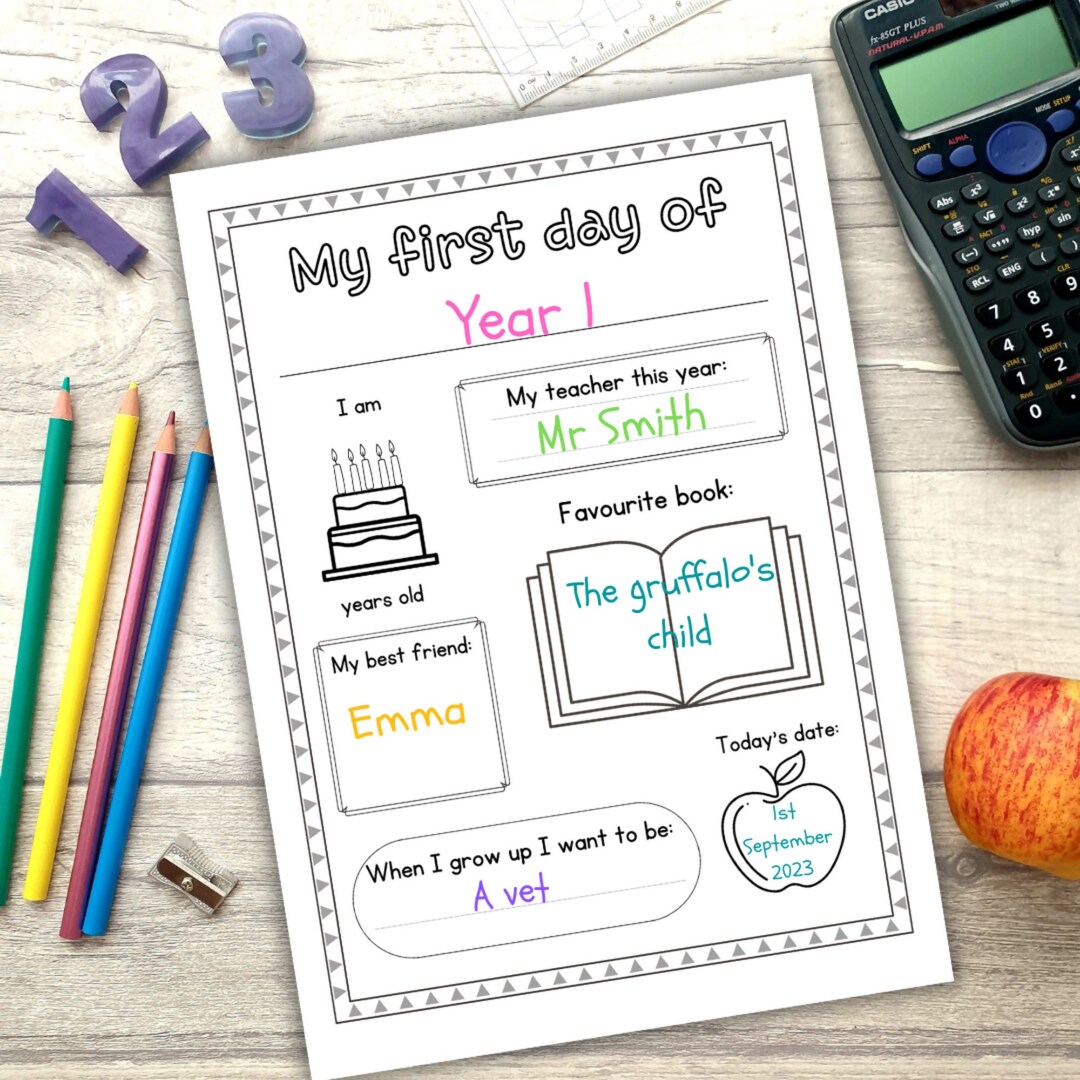 1 2 3
CASIO
fx-85GT PLUS
NATURAL-V.P.A.M.
TWO WAY
SHIFT
ALPHA
MODE SETUP
Abs
x³
√
x²
hyp
sin
RCL
ENG
STO
CLR
7
8
9
4
5
1
2
0
Rnd
Ran#
STAT
VERIFY
My first day of
Year 1
I am
years old
My teacher this year:
Mr Smith
Favourite book:
The gruffalo's
child
My best friend:
Emma
Today's date:
1st
September
2023
When I grow up I want to be:
A vet